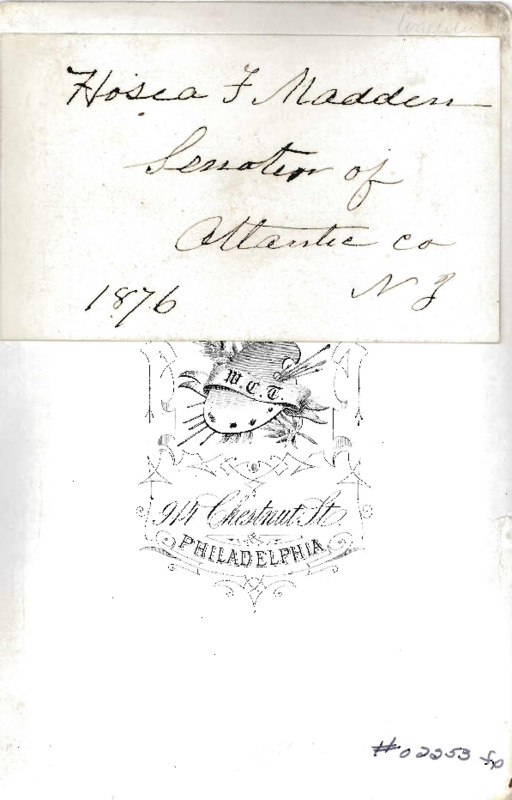 Hosea F Madden
Senator of
Atlantic co
1876 N J
W. C. T.
914 Chestnut St
PHILADELPHIA
#02253